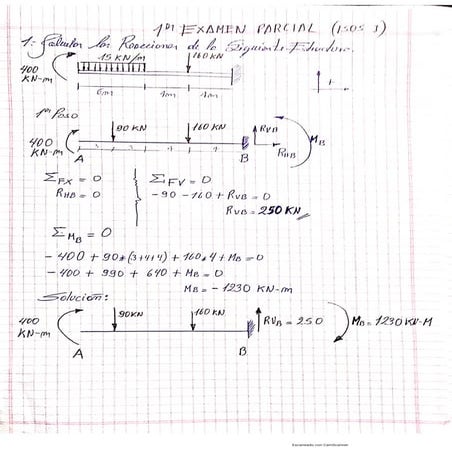 1er EXAMEN PARCIAL (ISOS 1)
1.- Calcular las Reacciones de la Siguiente Estructura.
15 KN/m 160 KN
400
KN-m
6m 4m 4m
1er Paso
90 KN 160 KN RVB MB
400
KN-m
A 3 3 4 4 B RHB
ΣFX = 0 ΣFV = 0
RHB = 0 -90 -160 + RVB = 0
RVB = 250 KN
ΣMB = 0
- 400 + 90*(3+4+4) + 160*4 + MB = 0
- 400 + 990 + 640 + MB = 0
MB = - 1230 KN-m
Solucion:
400 90KN 160 KN RVB = 250 MB = 1230 KN-M
KN-m
A B
Escaneado con CamScanner